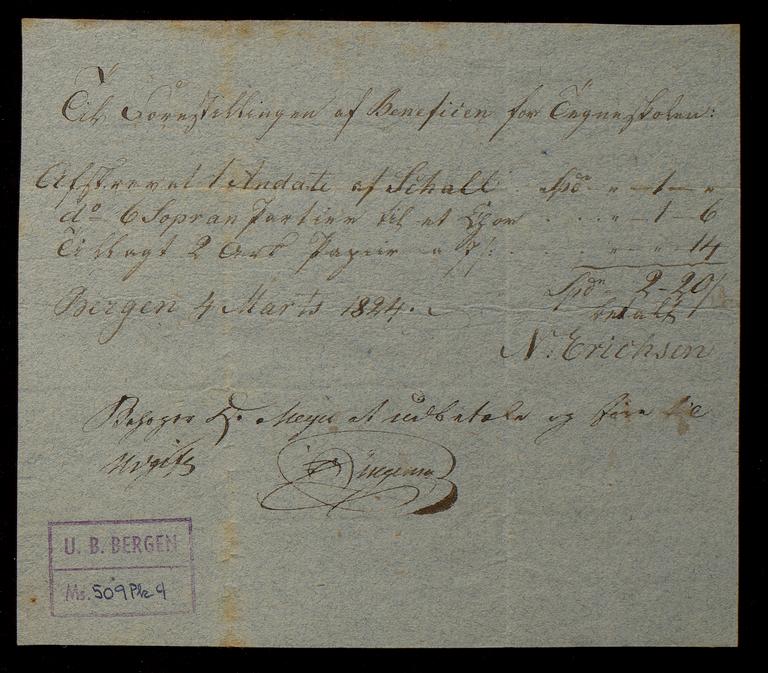 Til Forestillingen af Beneficen for Tegneskolen:
Afskrevet 1 Andate af Schall . Spd " — 1 — "
do 6 Sopran Partier til et Chor . . . " — 1 — 6
Tillagt 2 Ark Papiir a 7/: . . " — " — 14
Spdr 2 - 20/
Bergen 4 Marts 1824.
betalt
N. Erichsen
Behager Hr. Meyer at udbetale og føre til
Udgift
U. B. BERGEN
Ms. 509 Pk 9